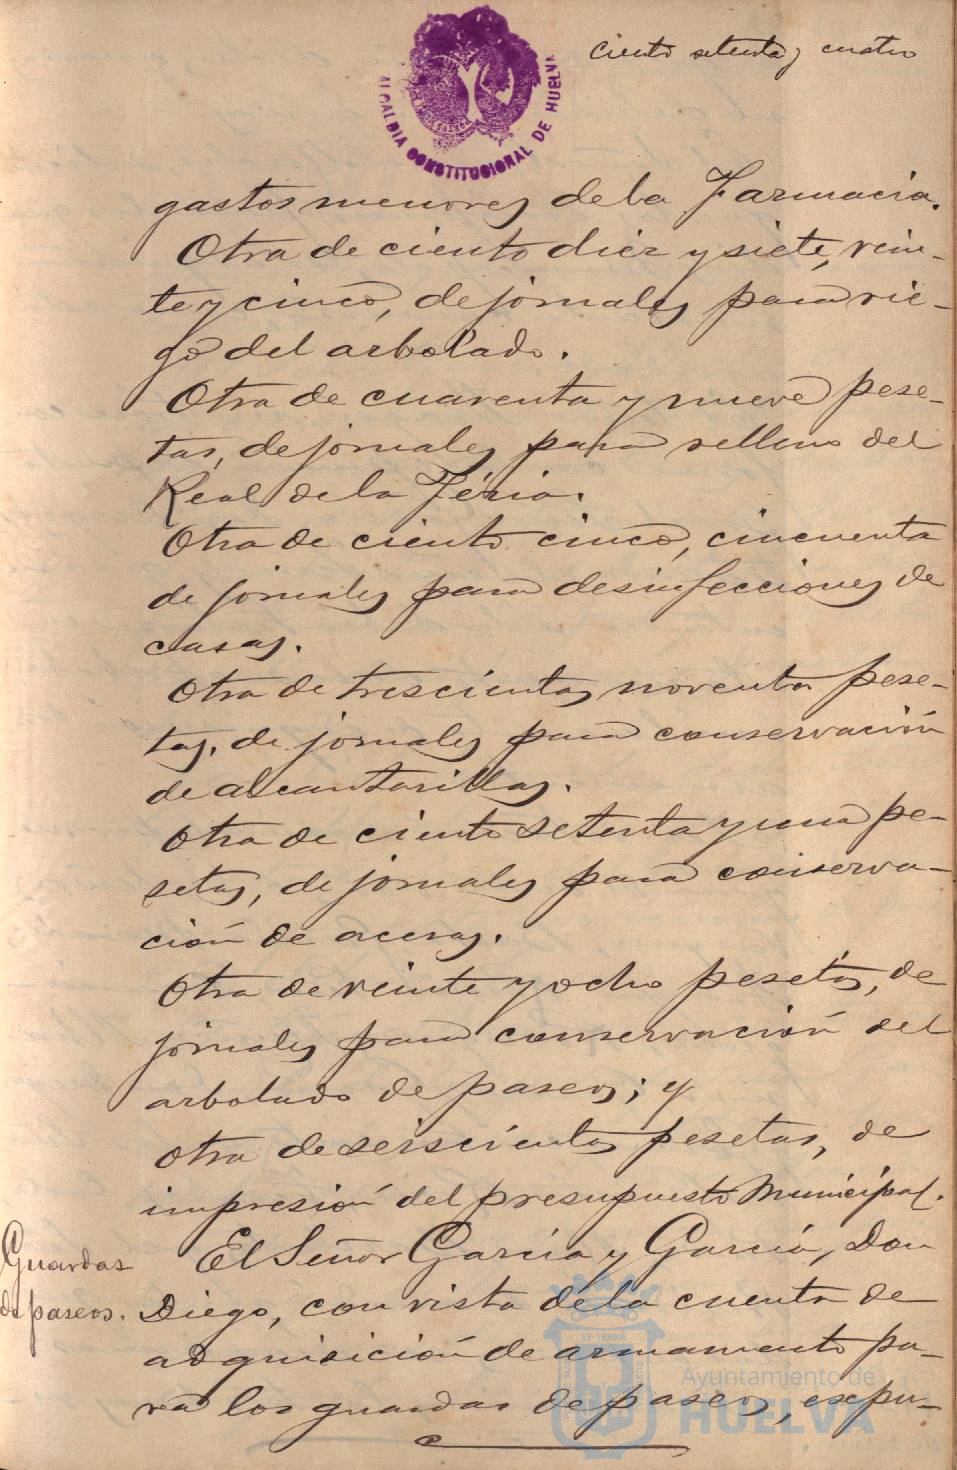 ciento setenta y cuatro
ALCALDIA CONSTITUCIONAL DE HUELVA
gastos menores de la Farmacia.
Otra de ciento diez y siete, vein-
te y cinco, de jornales para rie-
go del arbolado.
Otra de cuarenta y nueve pese-
tas, de jornales para relleno del
Real de la Féria.
Otra de ciento cinco, cincuenta
de jornales para desinfecciones de
casas.
Otra de trescientas noventa pese-
tas, de jornales para conservación
de alcantarillas.
Otra de ciento setenta y una pe-
setas, de jornales para conserva-
ción de aceras.
Otra de veinte y ocho pesetas, de
jornales para conservación del
arbolado de paseos; y
otra de seiscientas pesetas, de
impresión del presupuesto Municipal.
Guardas
de paseos.
El Señor García y García, Don
Diego, con vista de la cuenta de
adquisición de armamento pa-
ra los guardas de paseos, expu-
Ayuntamiento de
HUELVA